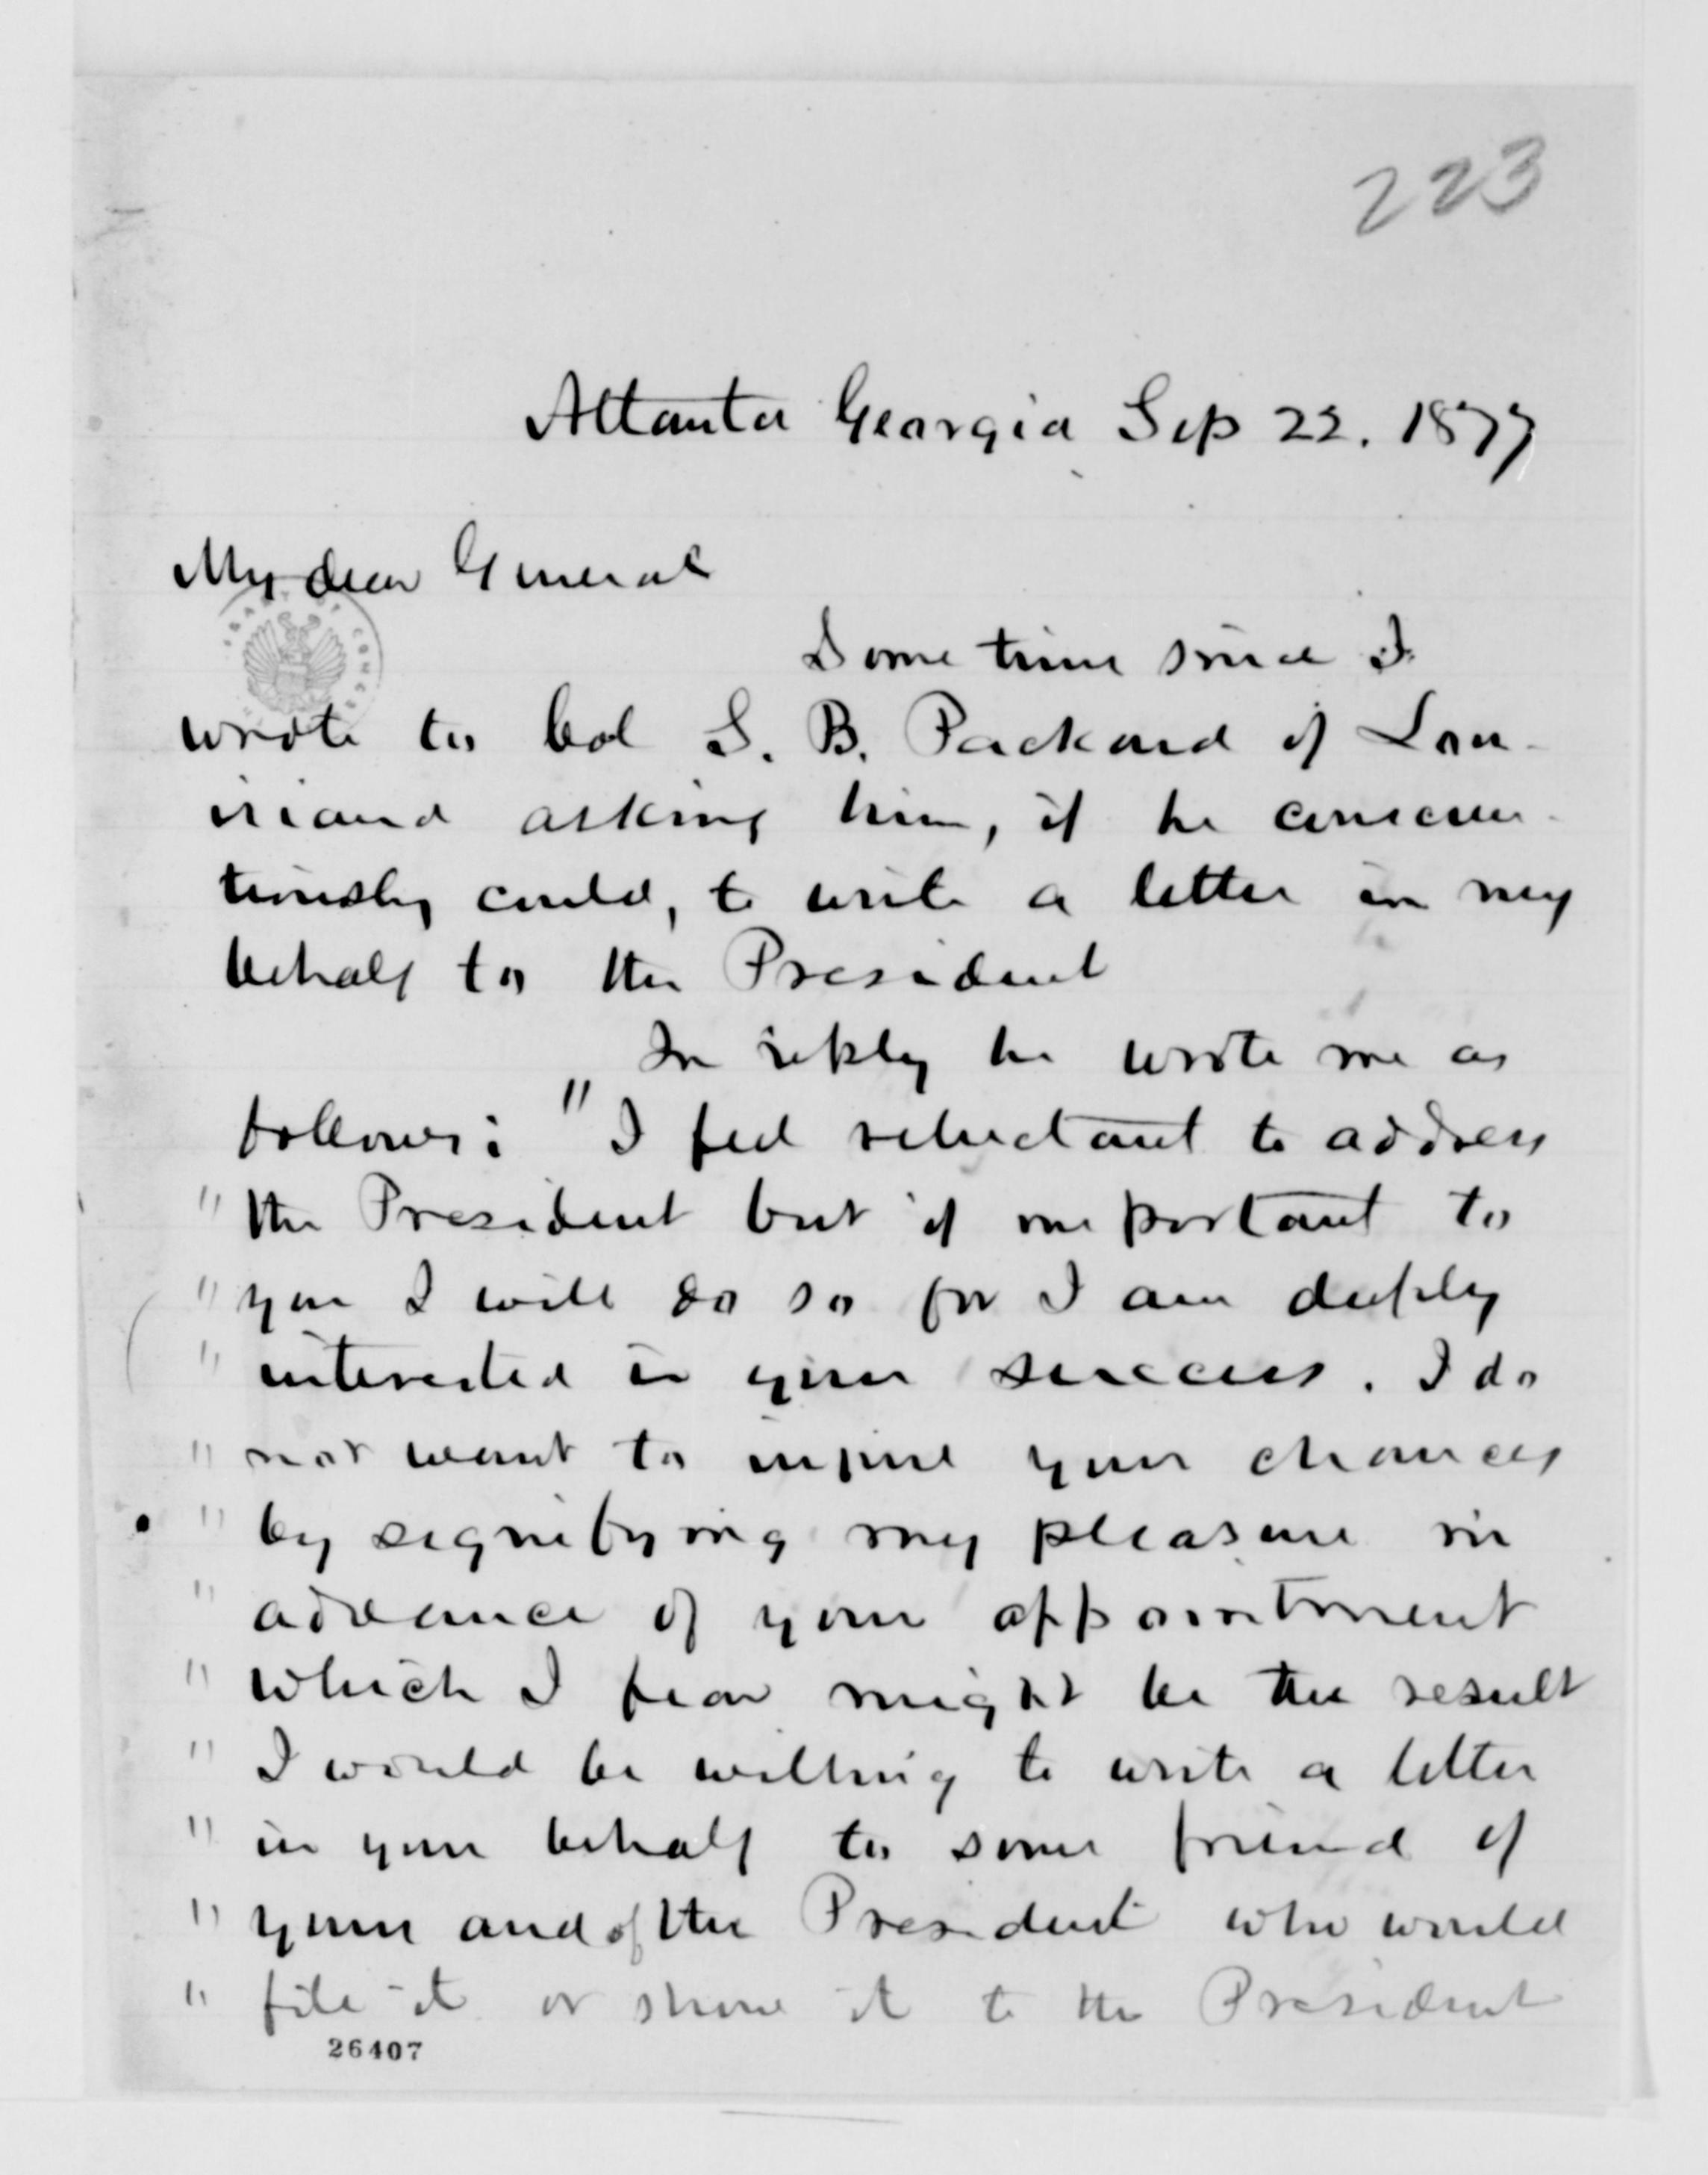 223
Atlanta Georgia Sep 22. 1877
My dear General
Some time since I
wrote to Col S. B. Packard of Lou-
isiana asking him, if he conscien-
tiously could, to write a letter in my
behalf to the President
In reply he wrote me as
follows: "I feel reluctant to address
" the President but if important to
" you I will do so for I am deeply
" interested in your success. I do
" not want to injure your chances
" by signifying my pleasure in
" advance of your appointment
" which I fear might be the result
" I would be willing to write a letter
" in your behalf to some friend of
" yours and of the President who would
" file it or show it to the President
26407